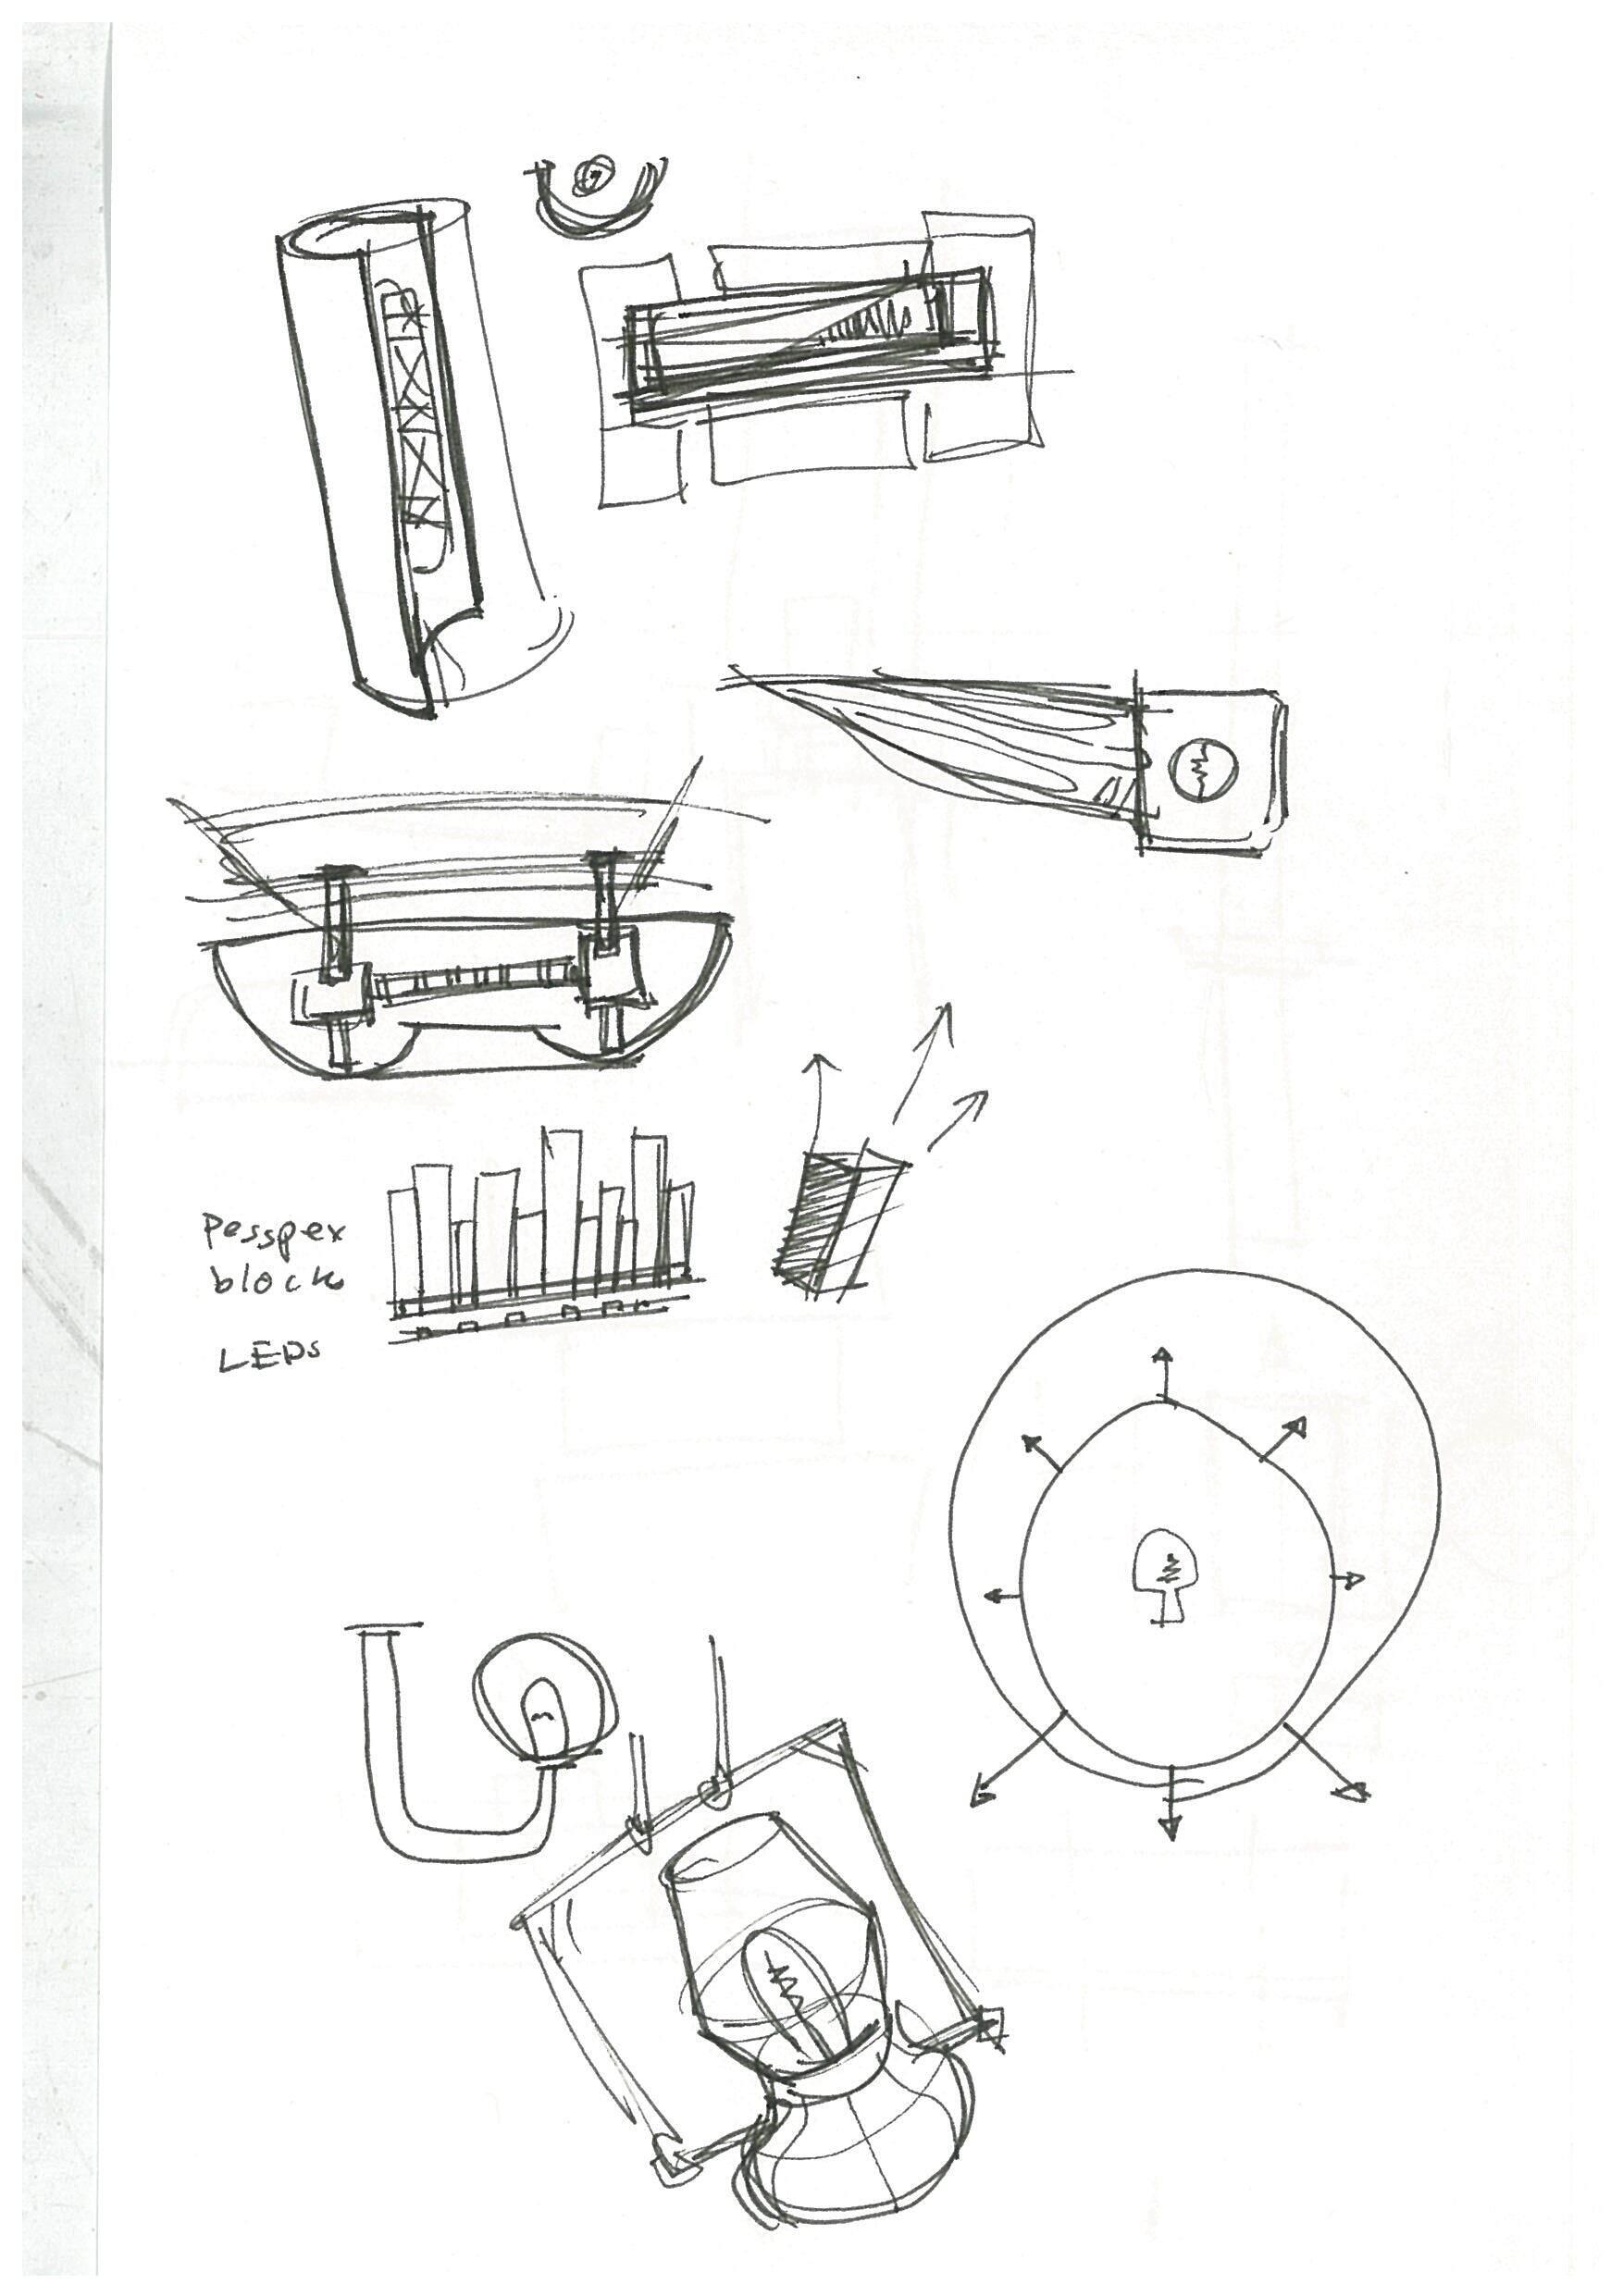 Pesspex
block
LEDs